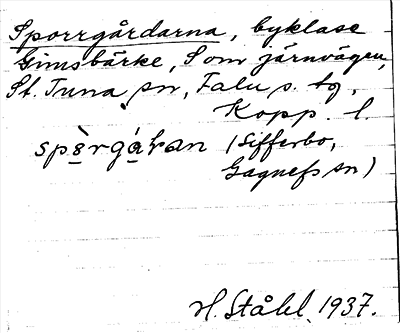 Sporrgårdarna, byklase
Gimsbärke, S om järnvägen,
St. Tuna sn, Falu s. tg.
Kopp. l.
spèrgáran (Sifferbo,
Gagnefs sn)
H. Ståhl 1937.